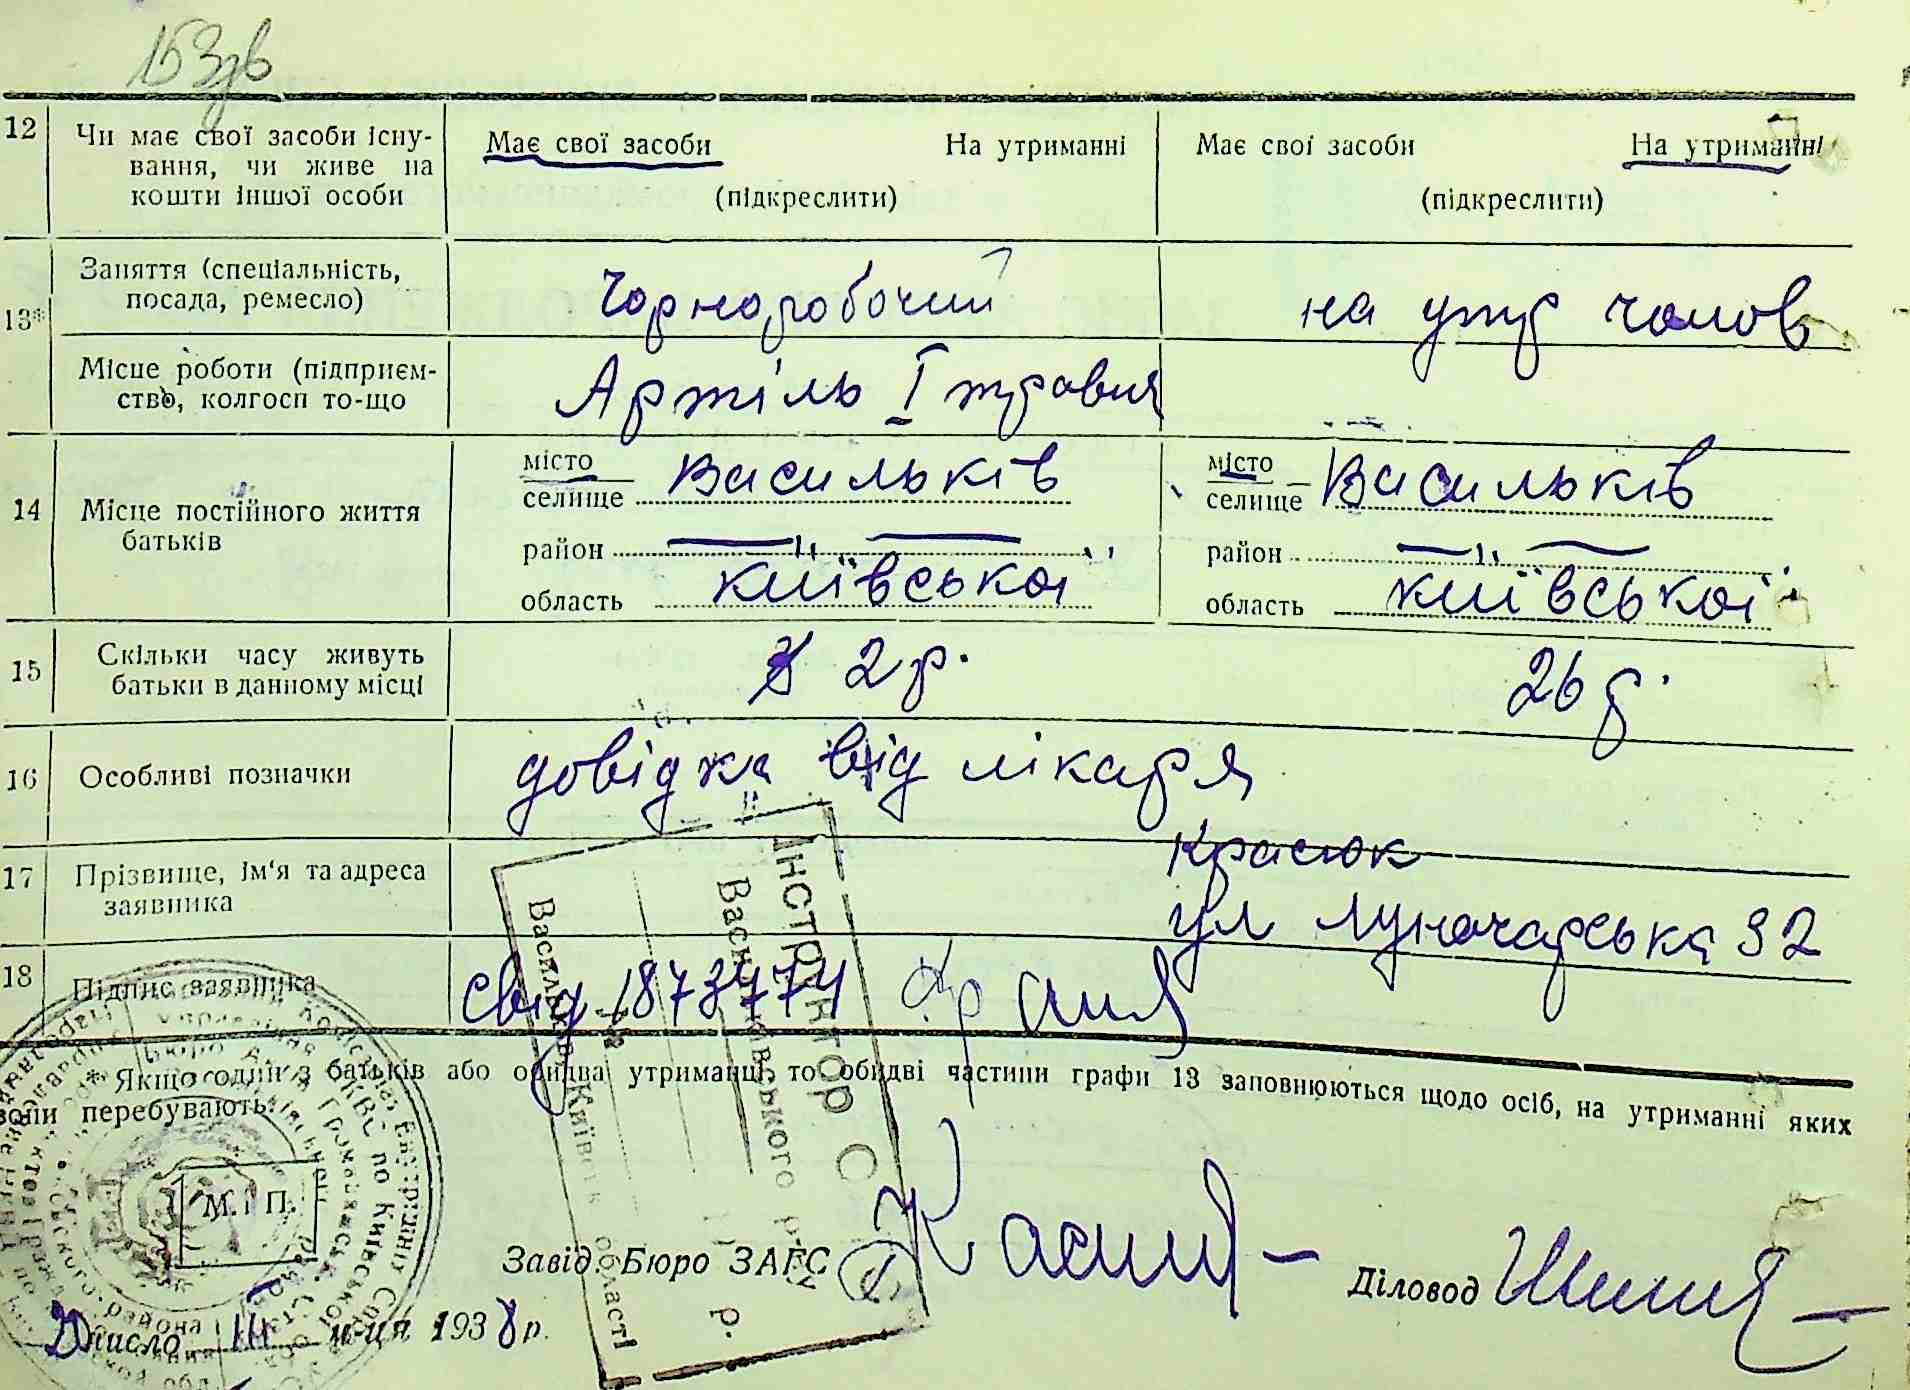 153зв
12 Чи має свої засоби існу- Має свої засоби На утриманні Має свої засоби На утриманні
вання, чи живе на
кошти іншої особи (підкреслити) (підкреслити)
13* Заняття (спеціальність, Чорноробочий на утр чолов
посада, ремесло)
Місце роботи (підприєм- Артіль І травня
ство, колгосп то-що
14 Місце постійного життя місто Васильків місто Васильків
батьків селище селище
район — " — район — " —
область київської область київської
15 Скільки часу живуть 2 р. 26 р.
батьки в данному місці
16 Особливі позначки довідка від лікаря
17 Прізвище, ім'я та адреса Красюк
заявника ул Луначарська 32
18 Підпис заявника свід 1873474
* Якщо один з батьків або обидва утриманці, то обидві частини графи 13 заповнюються щодо осіб, на утриманні яких
вони перебувають.
Інструктор
Васильківського р-ну
Васильків Київськ області
р.
М. П.
Завід. Бюро ЗАГС
Діловод
число ІІІ м-ця 1938 р.